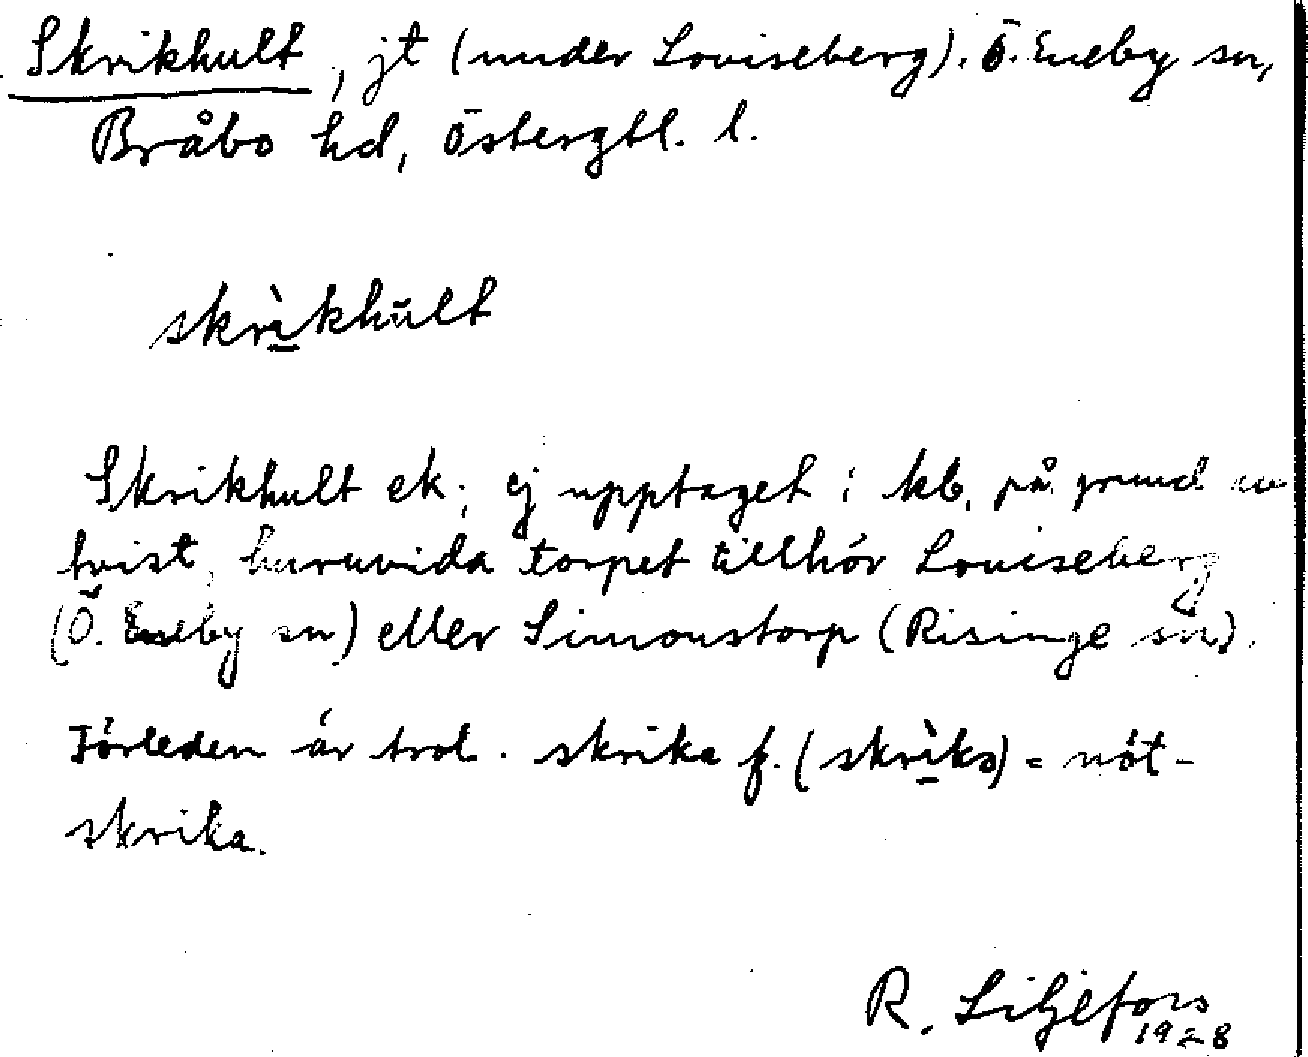 Skrikhult, jt (under Louiseberg). Ö. Eneby sn,
Bråbo hd, Östergtl. l.
skrìkhūlt
Skrikhult ek.; ej upptaget i kb. på grund av
tvist, huruvida torpet tillhör Louiseberg
(Ö. Eneby sn) eller Simonstorp (Risinge sn).
Förleden är trol. skrika f. (skrìkɔ) = nöt-
skrika.
R. Liljefors
1928